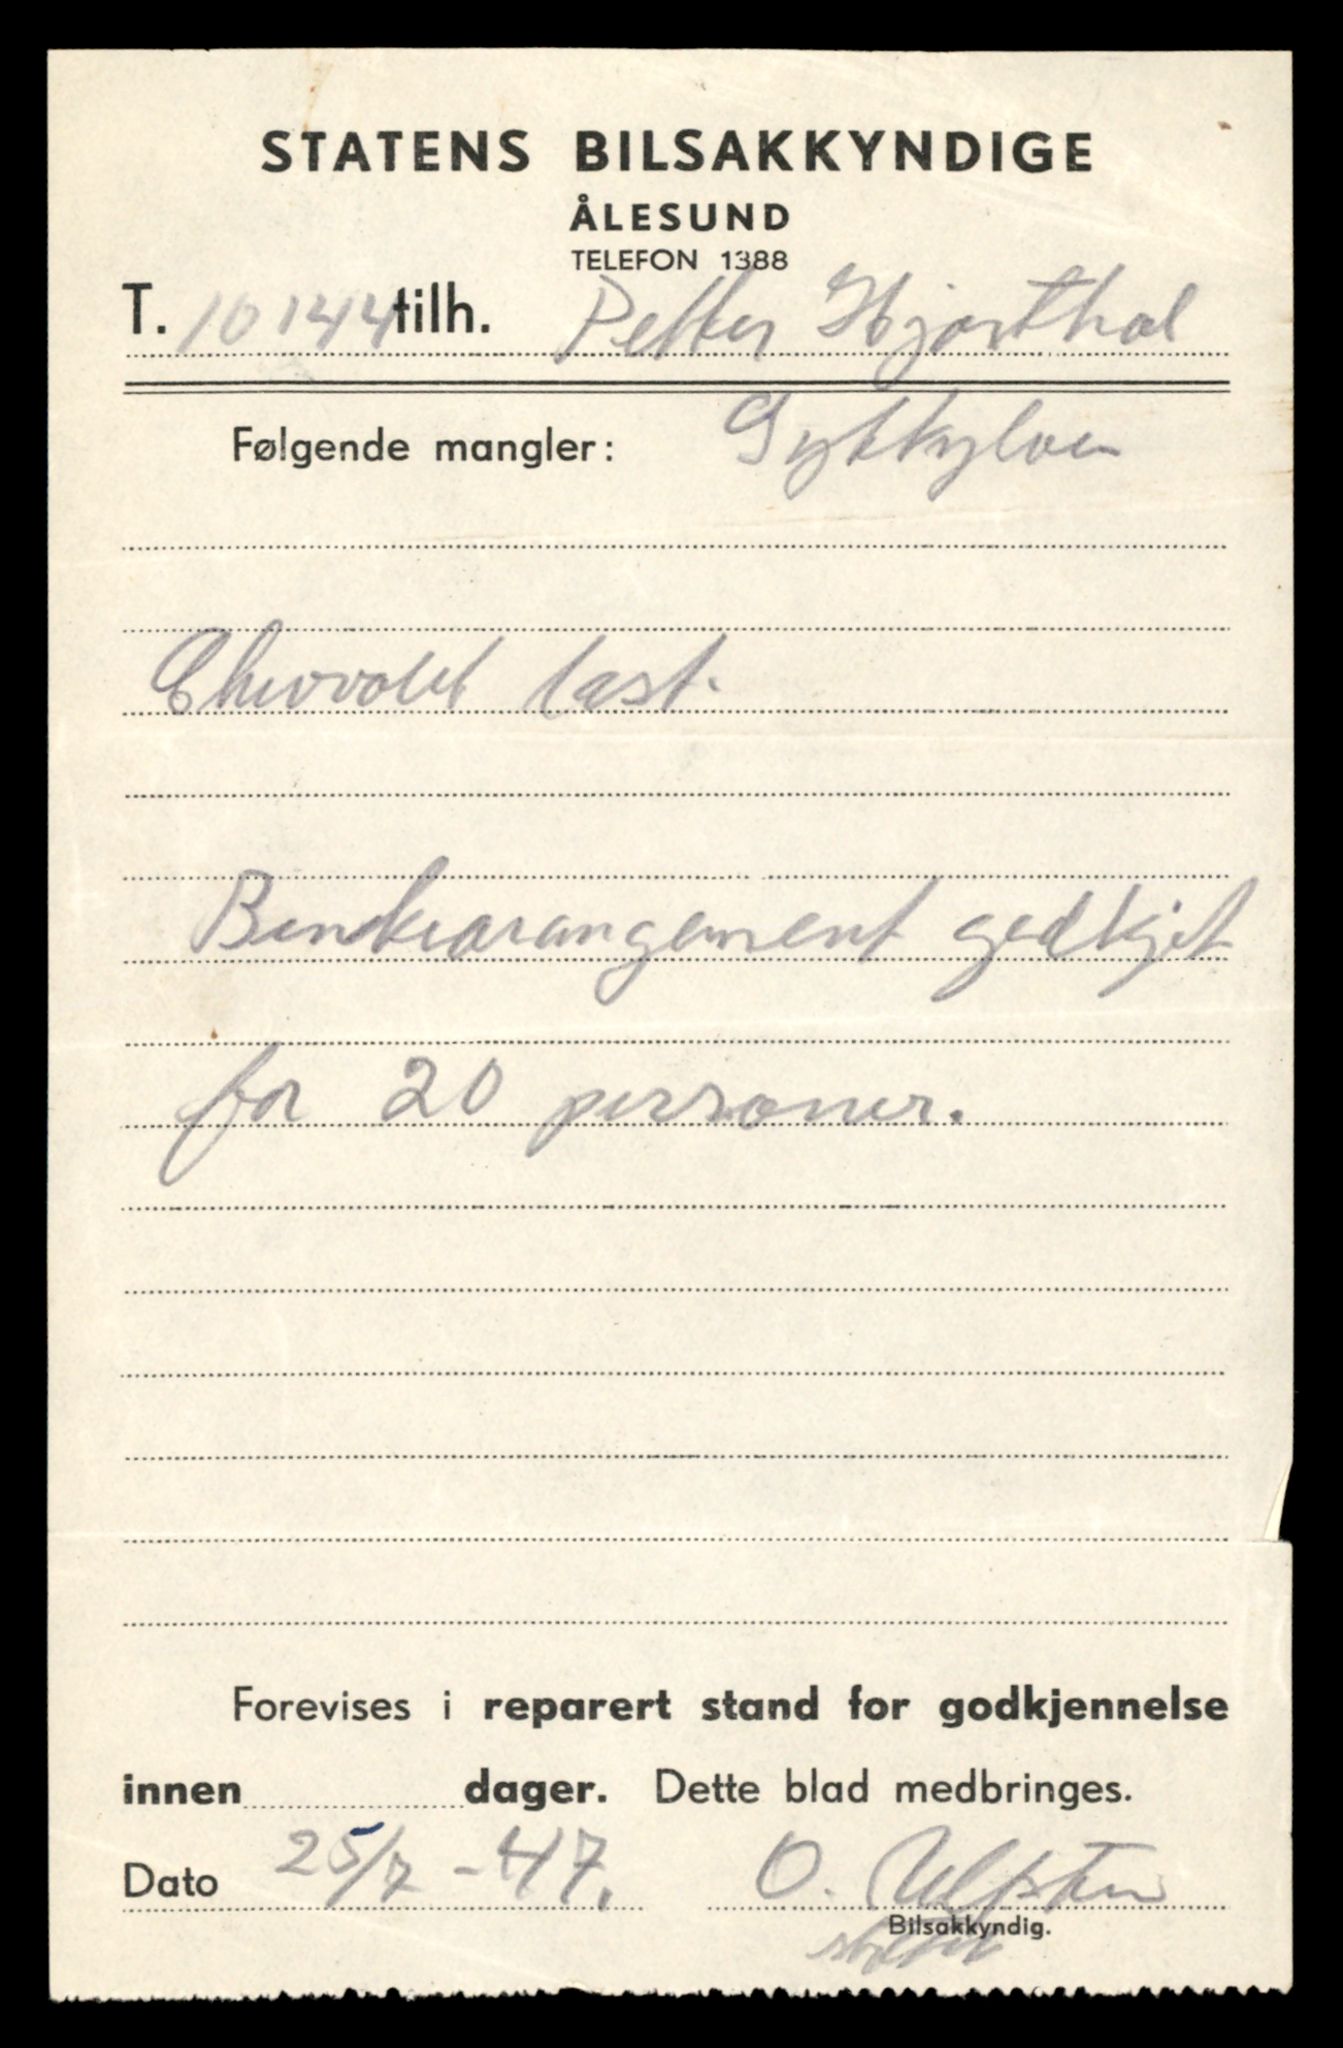 STATENS BILSAKKYNDIGE
ÅLESUND
TELEFON 1388
T. 10144 tilh. Petter Hjorthol
Følgende mangler: Sykkylven
Chevrolet last.
Benkearangement godkjet
for 20 personer.
Forevises i reparert stand for godkjennelse
innen dager. Dette blad medbringes.
Dato 25/7 - 47. O.
Bilsakkyndig.